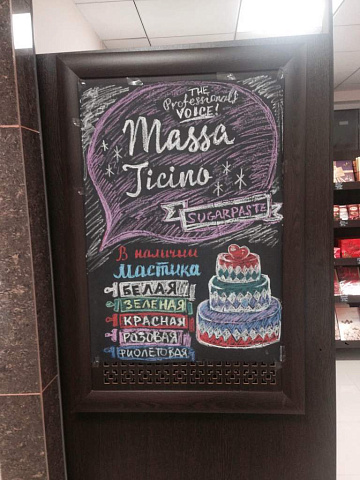 THE
Professionals
VOICE!
Massa
Ticino
SUGARPASTE
В наличии
Мастика
БЕЛАЯ
ЗЕЛЕНАЯ
КРАСНАЯ
РОЗОВАЯ
ФИОЛЕТОВАЯ